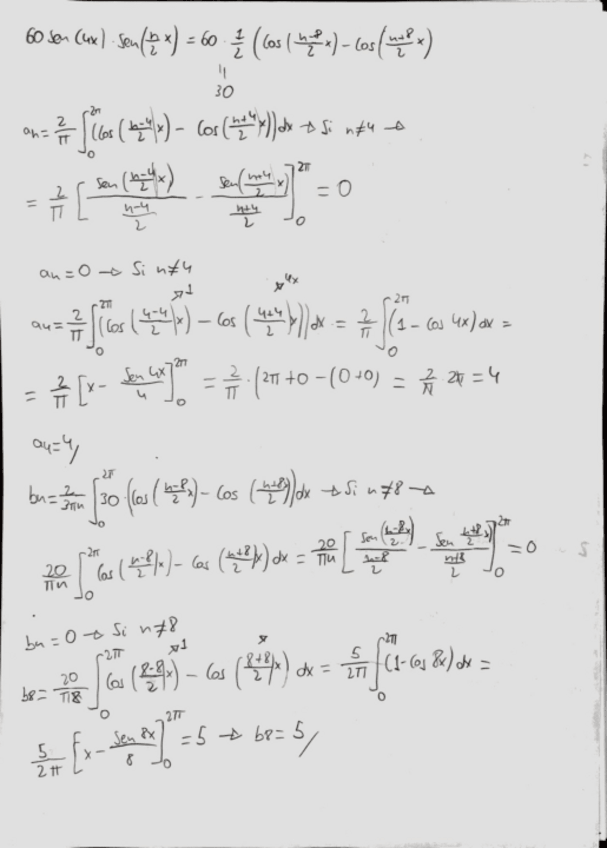 60 sen(4x) · sen(n/2 x) = 60 · 1/2 (cos(n-8/2 x) - cos(n+8/2 x)
30
an = 2/π ∫₀^2π (cos(n-4/2 x) - cos(n+4/2 x)) dx → Si n≠4 →
= 2/π [sen(n-4/2 x) / n-4/2 - sen(n+4/2 x) / n+4/2]₀^2π = 0
an = 0 → Si n≠4
1 4x
a4 = 2/π ∫₀^2π (cos(4-4/2 x) - cos(4+4/2 x)) dx = 2/π ∫₀^2π (1 - cos 4x) dx =
= 2/π [x - sen 4x/4]₀^2π = 2/π · (2π + 0 - (0+0) = 2/π · 2π = 4
a4 = 4/
bn = 2/3πn ∫₀^2π 30 · (cos(n-8/2 x) - cos(n+8/2 x)) dx → Si n≠8 →
20/πn ∫₀^2π cos(n-8/2 x) - cos(n+8/2 x) dx = 20/πn [sen(n-8/2 x) / n-8/2 - sen(n+8/2 x) / n+8/2]₀^2π = 0
bn = 0 → Si n≠8
1
b8 = 20/π8 ∫₀^2π cos(8-8/2 x) - cos(8+8/2 x) dx = 5/2π ∫₀^2π (1 - cos 8x) dx =
5/2π [x - sen 8x/8]₀^2π = 5 → b8 = 5/